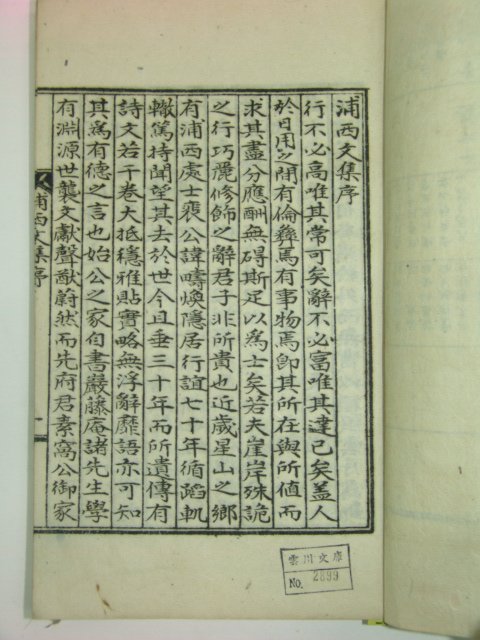 浦西文集序
行不必高唯其常可矣辭不必富唯其達已矣盖人
於日用之間有倫彛焉有事物焉卽其所在與所値而
求其盡分應酬無碍斯足以為士矣若夫崖岸殊詭
之行巧麗修飾之辭君子非所貴也近歲星山之鄉
有浦西處士裵公諱疇煥隱居行誼七十年循蹈軌
轍篤持聞望其去於世今且垂三十年而所遺傳有
詩文若干卷大抵穩雅貼實略無浮辭靡語亦可知
其為有德之言也始公之家自書巖藤庵諸先生學
有淵源世襲文獻聲猷蔚然而先府君素窩公御家
浦西文集序
一
雲川文庫
No. 2899